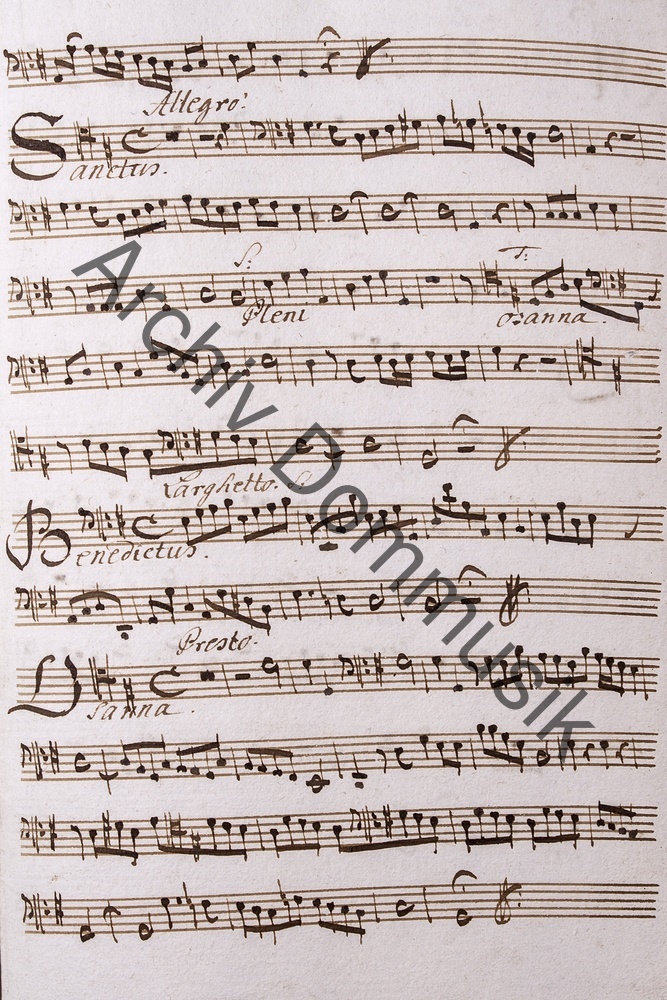 Allegro.
Sanctus.
S: T:
Pleni osanna.
Larghetto. S:
Benedictus.
Presto.
Osanna.
Archiv Dommusik